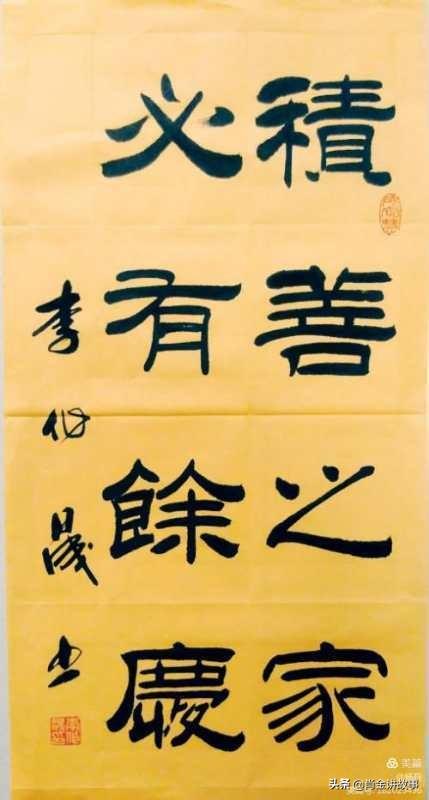 積善之家
必有餘慶
李伯晟书
美篇
头条 @肖金讲故事